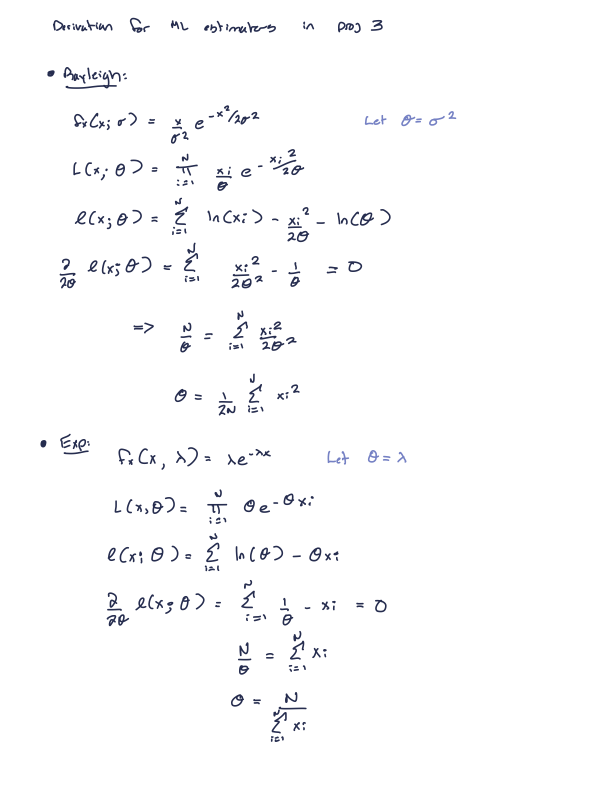 Derivation for ML estimators in proj 3
• Rayleigh:
fx(x; σ) = x/σ² e^(-x²/2σ²) Let θ = σ²
L(x; θ) = ∏_{i=1}^{N} xi/θ e^(-xi²/2θ)
ℓ(x; θ) = Σ_{i=1}^{N} ln(xi) - xi²/2θ - ln(θ)
∂/∂θ ℓ(x; θ) = Σ_{i=1}^{N} xi²/2θ² - 1/θ = 0
=> N/θ = Σ_{i=1}^{N} xi²/2θ²
θ = 1/2N Σ_{i=1}^{N} xi²
• Exp:
fx(x, λ) = λe^(-λx) Let θ = λ
L(x, θ) = ∏_{i=1}^{N} θe^(-θxi)
ℓ(x; θ) = Σ_{i=1}^{N} ln(θ) - θxi
∂/∂θ ℓ(x; θ) = Σ_{i=1}^{N} 1/θ - xi = 0
N/θ = Σ_{i=1}^{N} xi
θ = N/Σ_{i=1}^{N} xi